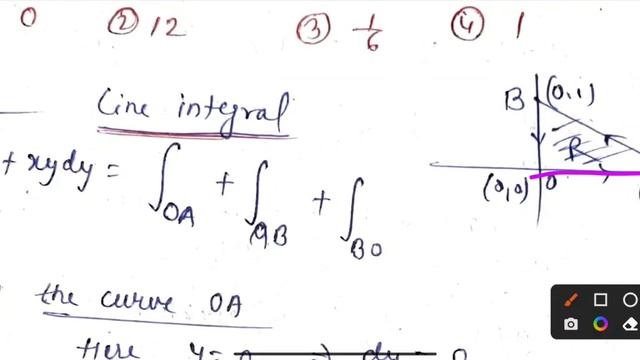 0 ② 12 ③ 1/6 ④ 1
Line integral
B (0,1)
+ xydy = ∫OA + ∫AB + ∫BO
R
(0,0) 0
the curve OA
Here y = 0 ⇒ dy = 0